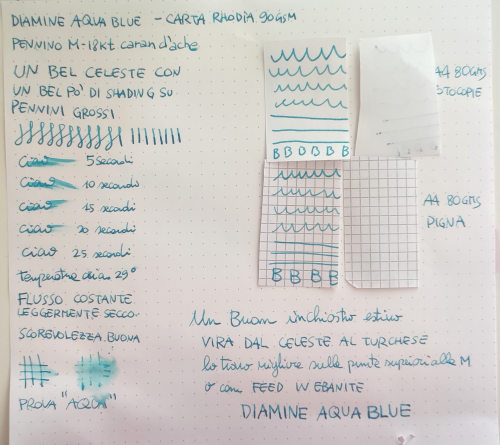 DIAMINE AQUA BLUE - CARTA RHODIA 90GSM
PENNINO M-18Kt caran d'ache
UN BEL CELESTE CON
UN BEL PO' DI SHADING SU
PENNINI GROSSI
Ciao 5 secondi
Ciao 10 secondi
Ciao 15 secondi
Ciao 20 secondi
Ciao 25 secondi
temperatura 29°
FLUSSO COSTANTE
LEGGERMENTE SECCO
SCOREVOLEZZA BUONA
PROVA "ACQUA"
B B B B B
A4 80GMS
FOTOCOPIE
B B B B
A4 80GMS
PIGNA
Un Buon inchiostro estivo
VIRA DAL CELESTE AL TURCHESE
lo trovo migliore sulle punte superiori alle M
o con FEED IN EBANITE
DIAMINE AQUA BLUE